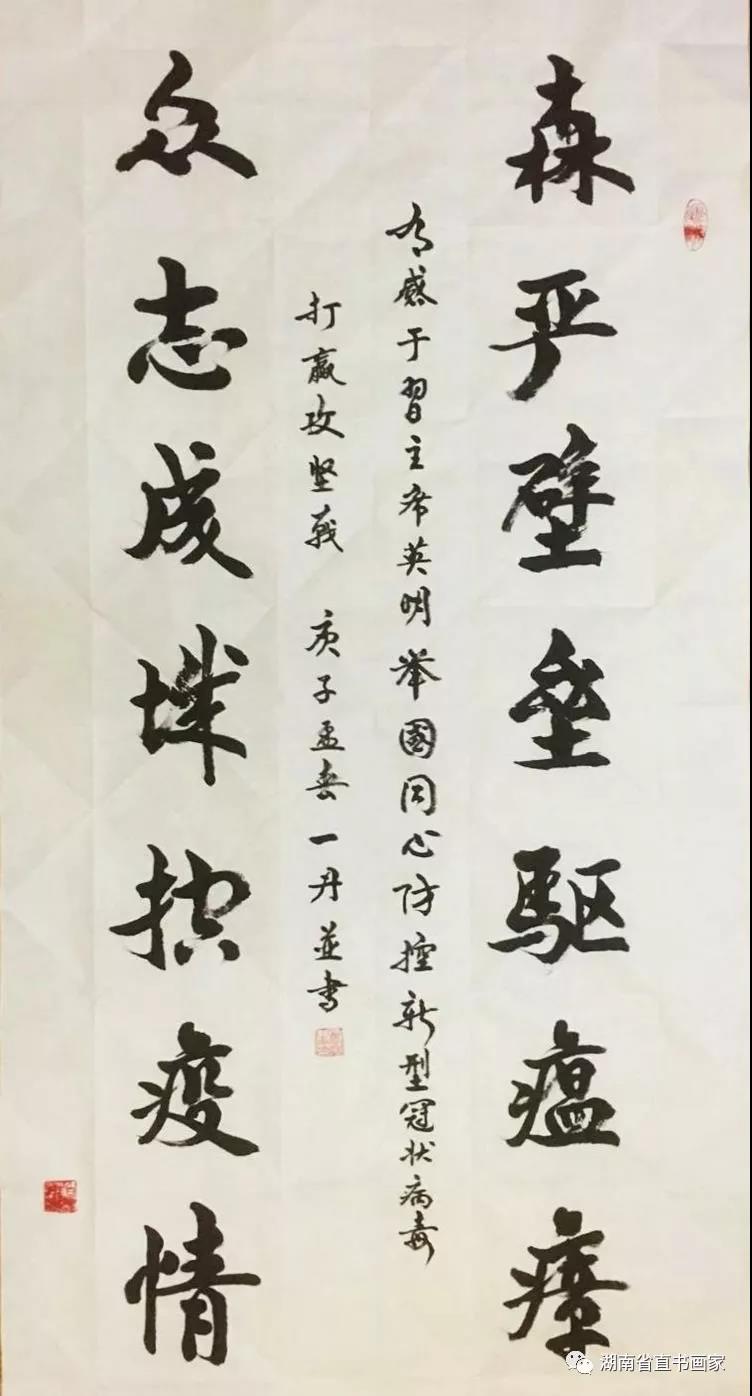 森严壁垒驱瘟瘴
有感于習主席英明举國同心防控新型冠状病毒
打赢攻坚战 庚子孟春一丹並书
众志成城控疫情
湖南省直书画家